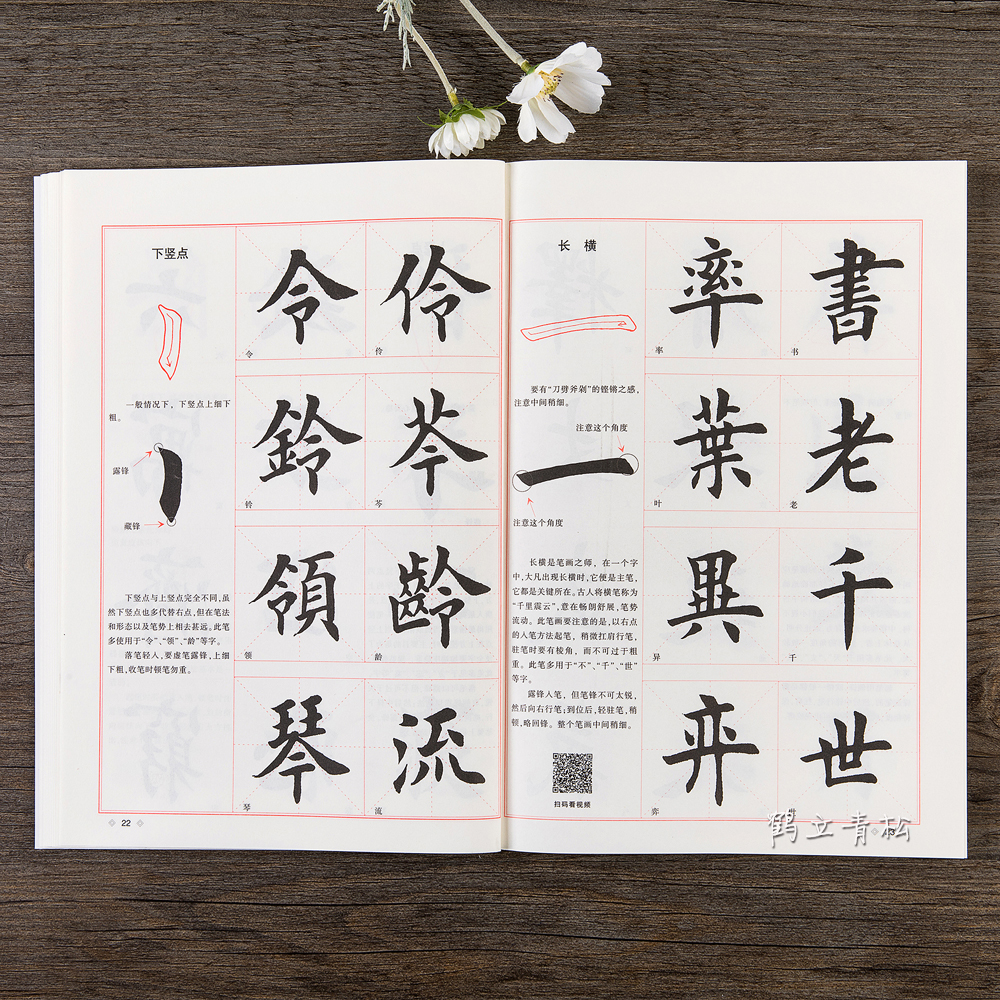 下竖点
一般情况下，下竖点上细下
粗。
露锋
藏锋
下竖点与上竖点完全不同，虽
然下竖点也多代替右点，但在笔法
和形态以及笔势上相去甚远。此笔
多使用于“令”、“领”、“龄”等字。
落笔轻入，要虚笔露锋，上细
下粗，收笔时顿笔勿重。
令 伶
令 伶
鈴 芩
铃 芩
領 齡
领 龄
琴 流
琴 流
22
长 横
要有“刀劈斧剁”的铿锵之感，
注意中间稍细。
注意这个角度
注意这个角度
长横是笔画之师，在一个字
中，大凡出现长横时，它便是主笔，
它都是关键所在。古人将横笔称为
“千里震云”，意在畅朗舒展，笔势
流动。此笔画要注意的是，以右点
的入笔方法起笔，稍微扛肩行笔，
驻笔时要有棱角，而不可过于粗
重。此笔多用于“不”、“千”、“世”
等字。
露锋入笔，但笔锋不可太锐，
然后向右行笔；到位后，轻驻笔，稍
顿，略回锋。整个笔画中间稍细。
扫码看视频
率 書
率 书
葉 老
叶 老
異 千
异 千
弈 世
弈 世
鹤立青松
23